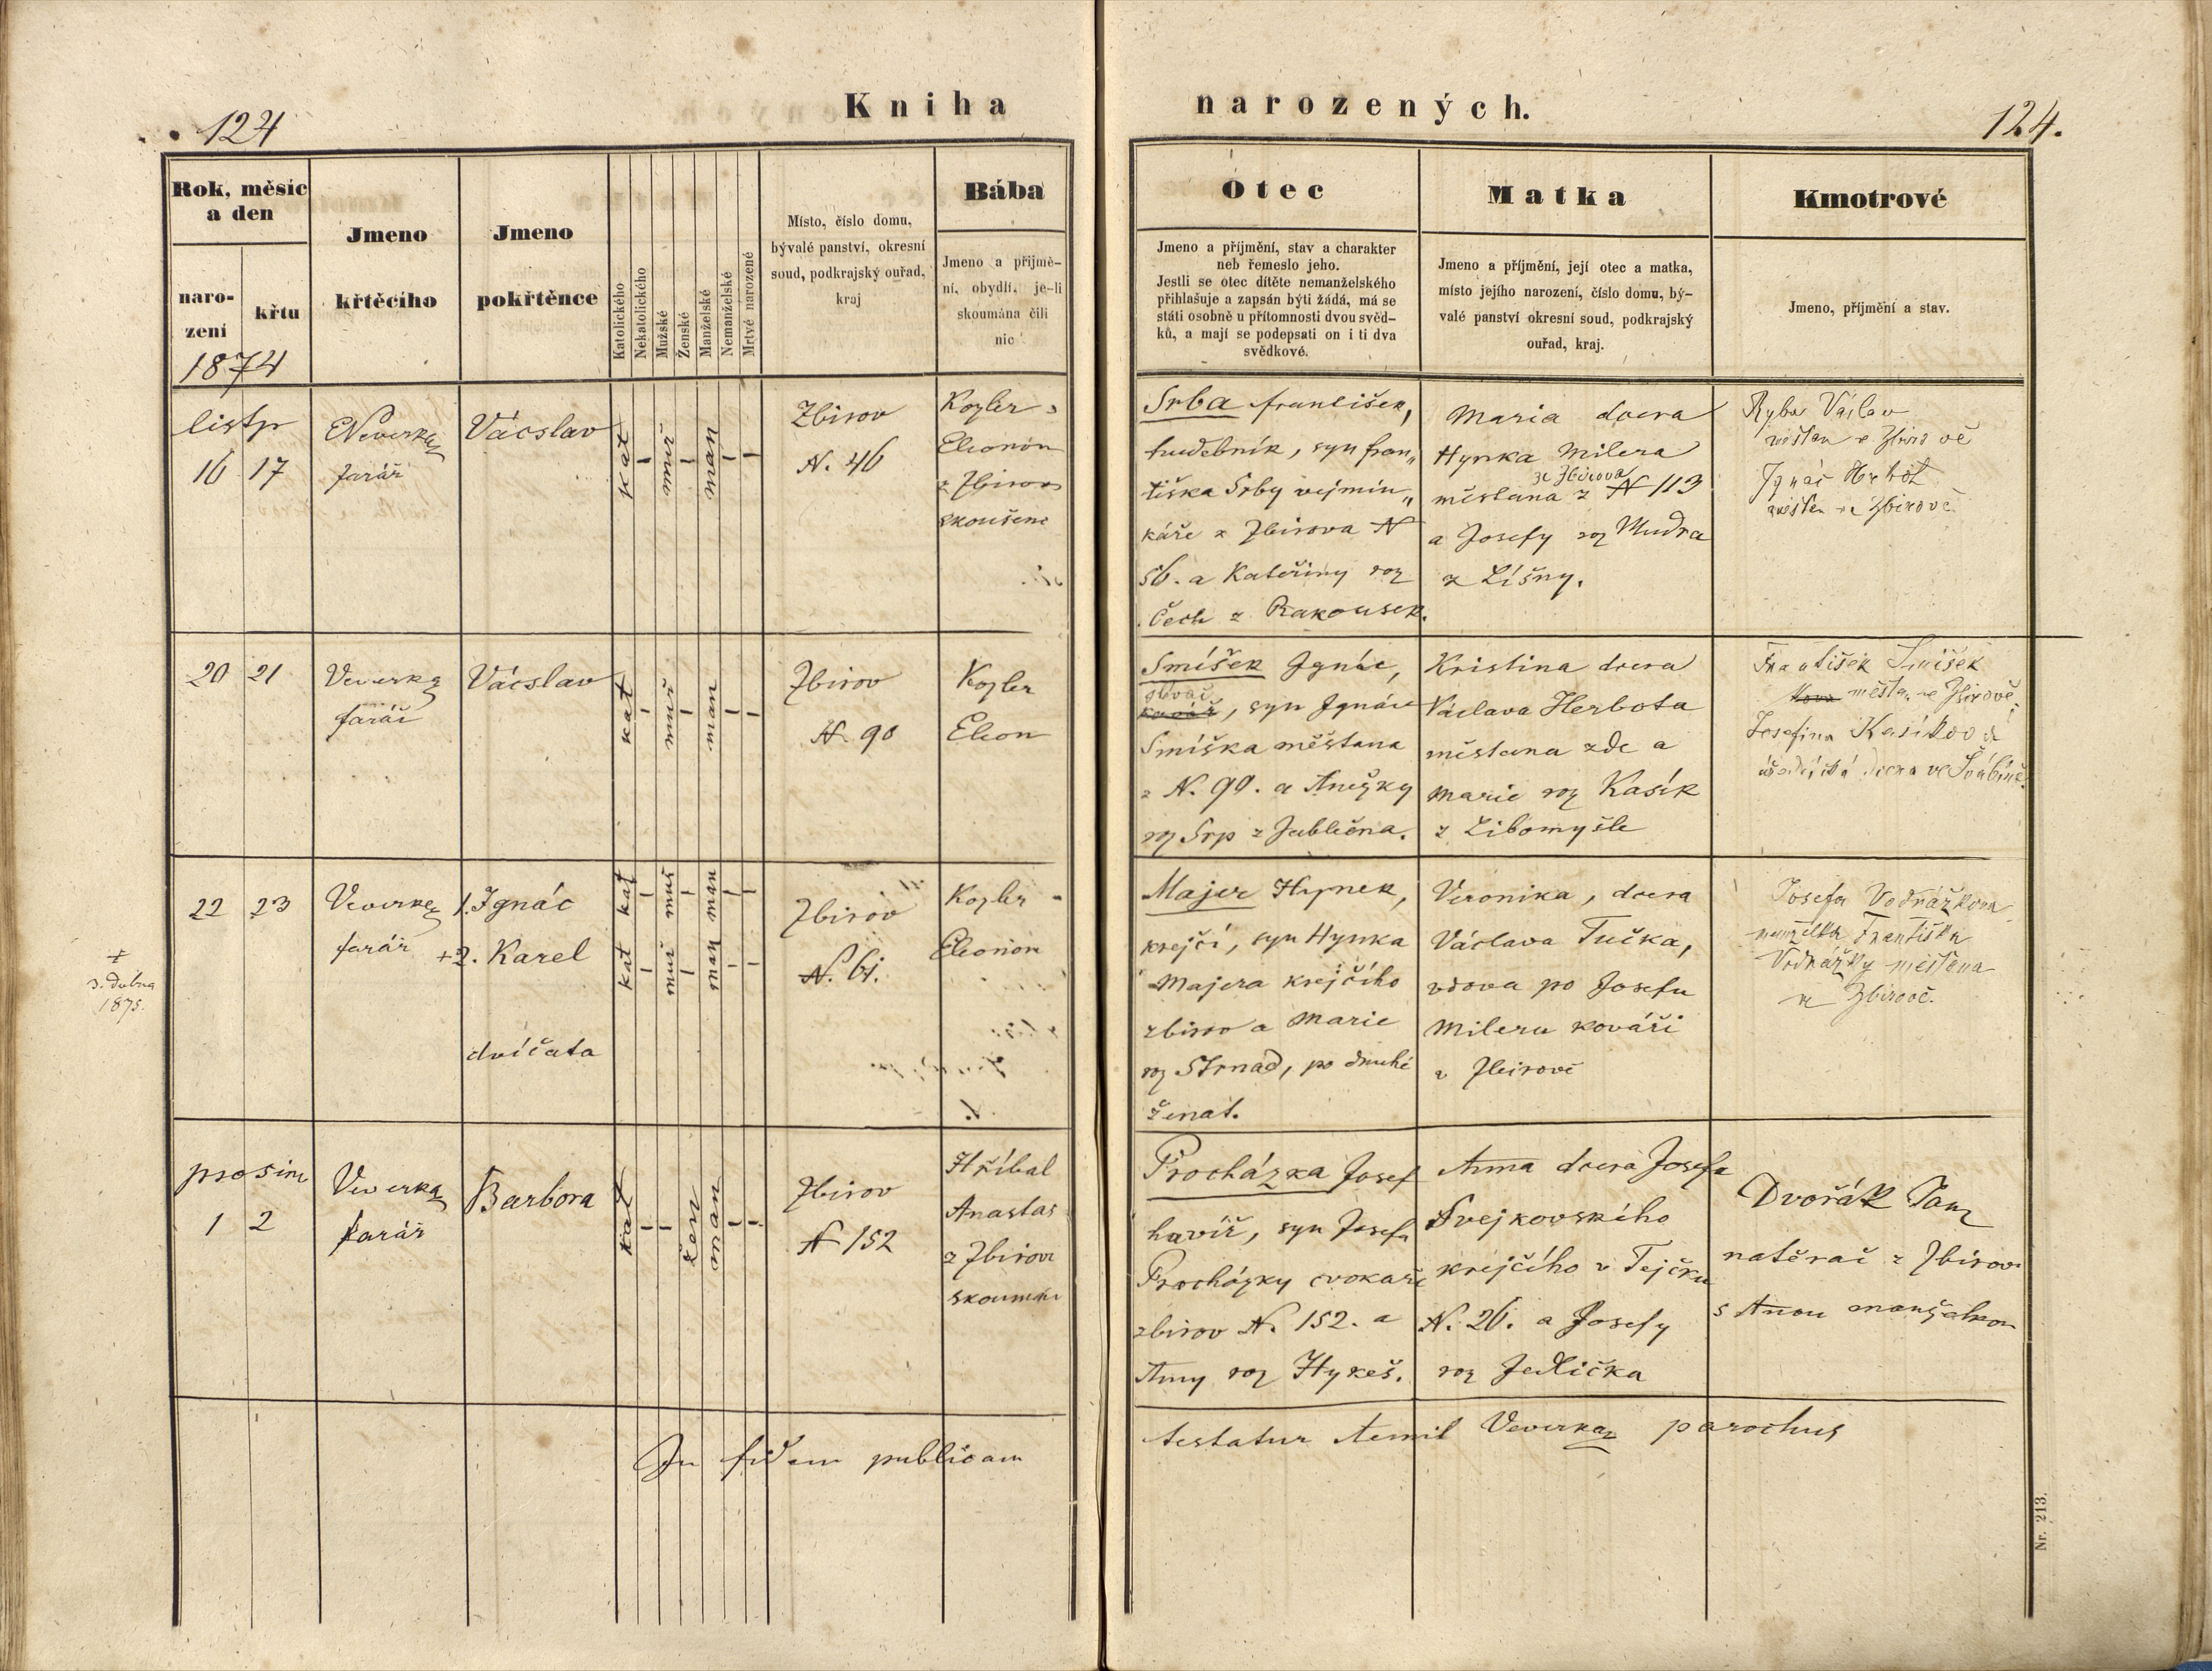 124
Kniha
narozených.
124.
Rok, měsíc
a den
naro-
zení
křtu
1874
Jmeno
křtěcího
Jmeno
pokřtěnce
Katolického
Nekatolického
Mužské
Ženské
Manželské
Nemanželské
Mrtvě narozené
Místo, číslo domu,
bývalé panství, okresní
soud, podkrajský ouřad,
kraj
Bába
Jmeno a přijmě-
ní, obydlí, je-li
skoumána čili
nic
Otec
Jmeno a příjmění, stav a charakter
neb řemeslo jeho.
Jestli se otec dítěte nemanželského
přihlašuje a zapsán býti žádá, má se
státi osobně u přítomnosti dvou svěd-
ků, a mají se podepsati on i ti dva
svědkové.
Matka
Jmeno a příjmění, její otec a matka,
místo jejího narození, číslo domu, bý-
valé panství okresní soud, podkrajský
ouřad, kraj.
Kmotrové
Jmeno, příjmění a stav.
listp
16 17
Veverka
farář
Vácslav
kat
muž
man
Zbirov
N. 46
Kozler
Eleonon
z Zbirova
skoušena
Srba František,
hudebník, syn fran„
tiška Srby vejmin„
káře z Zbirova N
56. a Kateřiny roz
Čech z Rakousek.
Maria dcera
Hynka Milera
ze Zbirova
měšťana z N 113
a Josefy roz Mudra
z Líšny.
Ryba Václav
měšťan v Zbirově
Ignác Herbot
měšťan ve Zbirově
20 21
Veverka
farář
Vácslav
kat
muž
man
Zbirov
N. 90
Kozler
Eleon
Smíšek Ignác,
kovář, syn Ignáce
Smíška měštana
z N. 90. a Anežky
roz Srp z Jablečna.
Kristina dcera
Václava Herbota
měštana zde a
Marie roz Kasík
z Libomyšle
František Smíšek
měšťan ve Zbirově
Josefina Kasíková
dcera ve Švábíně.
22 23
Veverka
farář
1. Ignác
+2. Karel
dvíčata
kat kat
muž muž
man man
+
3. dubna
1875.
Zbirov
N. 61.
Kozler
Eleonon
Majer Hynek,
krejčí, syn Hynka
Majera krejčího
zbirov a Marie
roz Strnad, po druhé
ženat.
Veronika, dcera
Václava Tučka,
vdova po Josefu
Mileru kováři
v Zbirově
Josefa Vodrážkova
manželka Františka
Vodrážky měšťana
ve Zbirově.
prosinc
1 2
Veverka
farář
Barbora
kat
žen
man
Zbirov
N 152
Hříbal
Anastas
z Zbirova
skoumán
Procházka Josef
havíř, syn Josefa
Procházky cvokaře
zbirov N. 152. a
Anny roz Hykeš.
Anna dcera Josefa
Švejkovského
krejčího v Tejčku
N. 26. a Josefy
roz Jedlička
Dvořák Jan
natěrač z Zbirova
s Anou manželkou
In fidem publicam
testatur Aemil Veverka parochus
Nr. 213.